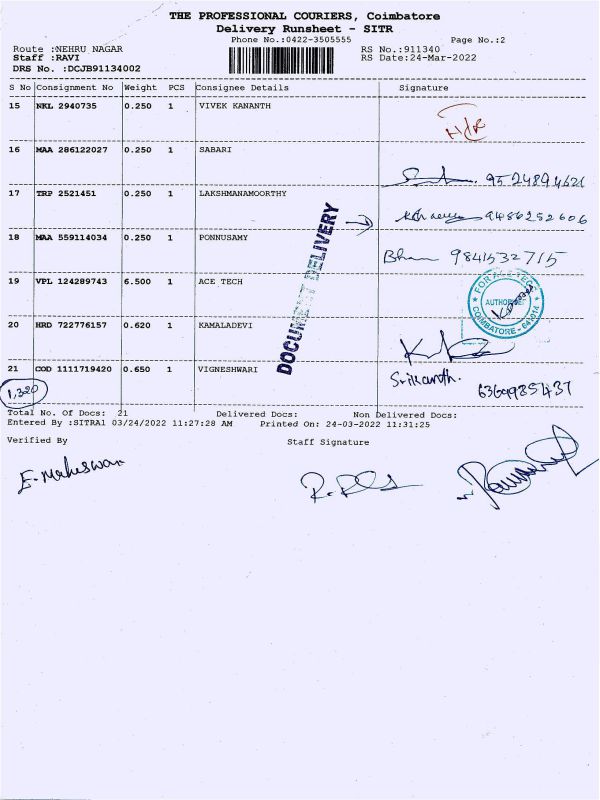 THE PROFESSIONAL COURIERS, Coimbatore
Delivery Runsheet - SITR
Phone No.:0422-3505555 Page No.:2
Route :NEHRU NAGAR RS No.:911340
Staff :RAVI RS Date:24-Mar-2022
DRS No. :DCJB91134002
S No Consignment No Weight PCS Consignee Details Signature
15 NKL 2940735 0.250 1 VIVEK KANANTH
16 MAA 286122027 0.250 1 SABARI
9524894621
17 TRP 2521451 0.250 1 LAKSHMANAMOORTHY
9486252606
DOCUMENT DELIVERY
18 MAA 559114034 0.250 1 PONNUSAMY
9841532715
19 VPL 124289743 6.500 1 ACE TECH
FOR ACE TECH
COIMBATORE - 641014
20 HRD 722776157 0.620 1 KAMALADEVI
21 COD 1111719420 0.650 1 VIGNESHWARI
Srikanth.
1,320
Total No. Of Docs: 21 Delivered Docs: Non Delivered Docs:
Entered By :SITRA1 03/24/2022 11:27:28 AM Printed On: 24-03-2022 11:31:25
Verified By Staff Signature
E. Maheswari